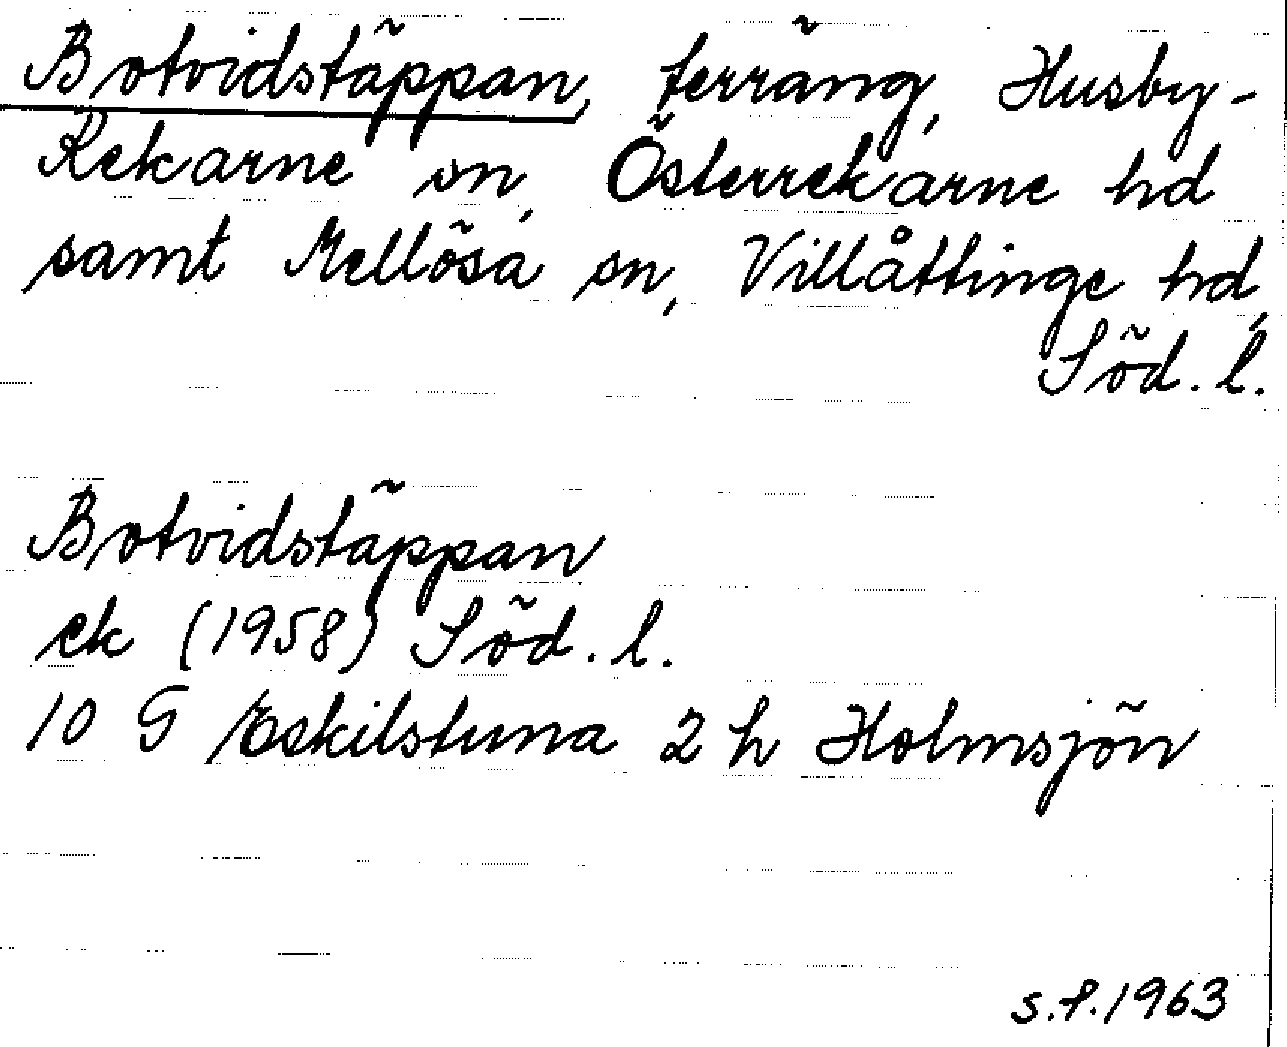 Botvidstäppan, terräng, Husby-
Rekarne sn, Österrekarne hd
samt Mellösa sn, Villåttinge hd,
Söd. l.
Botvidstäppan
ek (1958) Söd. l.
10 G Eskilstuna 2 h Holmsjön
s.f. 1963